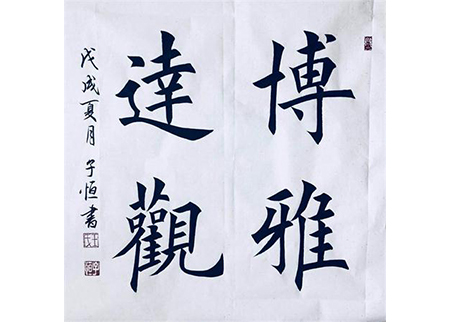 博雅
達觀
戊戌夏月 子恒書